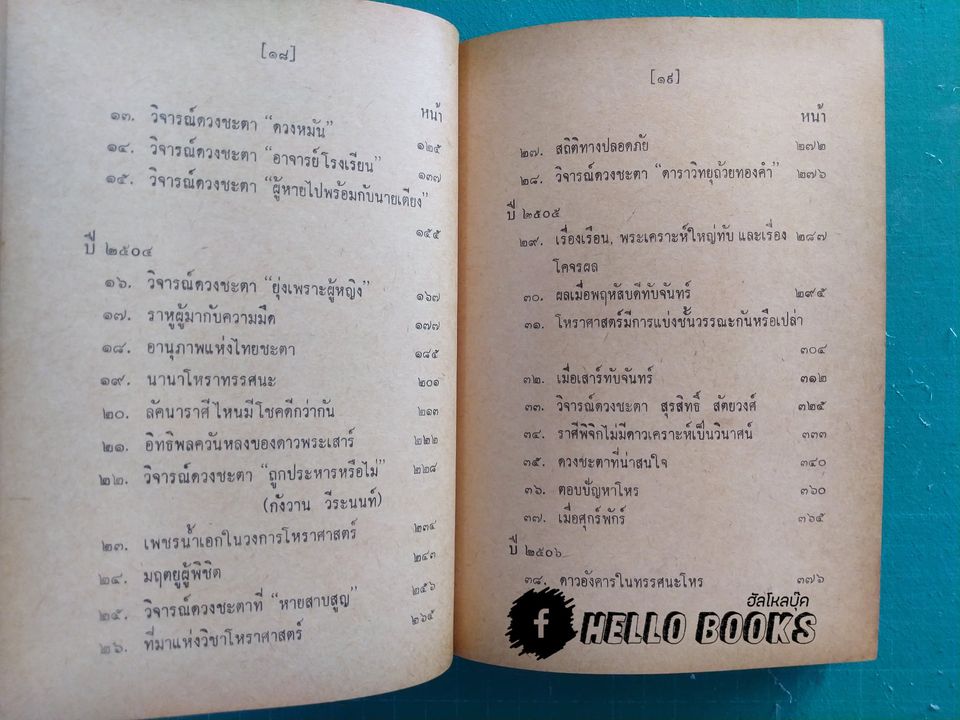 [๑๘]
หน้า
๑๓. วิจารณ์ดวงชะตา “ดวงหมัน” ๑๒๕
๑๔. วิจารณ์ดวงชะตา “อาจารย์โรงเรียน” ๑๓๗
๑๕. วิจารณ์ดวงชะตา “ผู้หายไปพร้อมกับนายเตียง”
๑๕๕
ปี ๒๕๐๔
๑๖. วิจารณ์ดวงชะตา “ยุ่งเพราะผู้หญิง” ๑๖๗
๑๗. ราหูผู้มากับความมืด ๑๗๗
๑๘. อานุภาพแห่งไทยชะตา ๑๘๕
๑๙. นานาโหราทรรศนะ ๒๐๑
๒๐. ลัคนาราศีไหนมีโชคดีกว่ากัน ๒๑๓
๒๑. อิทธิพลควันหลงของดาวพระเสาร์ ๒๒๒
๒๒. วิจารณ์ดวงชะตา “ถูกประหารหรือไม่” ๒๒๘
(กังวาน วีระนนท์)
๒๓. เพชรน้ำเอกในวงการโหราศาสตร์ ๒๓๔
๒๔. มฤตยูผู้พิชิต ๒๔๓
๒๕. วิจารณ์ดวงชะตาที่ “หายสาบสูญ” ๒๕๖
๒๖. ที่มาแห่งวิชาโหราศาสตร์ ๒๖๕
[๑๙]
หน้า
๒๗. สถิติทางปลอดภัย ๒๗๒
๒๘. วิจารณ์ดวงชะตา “ดาราวิทยุถ้วยทองคำ” ๒๗๖
ปี ๒๕๐๕
๒๙. เรื่องเรือน, พระเคราะห์ใหญ่ทับ และเรื่อง ๒๘๗
โคจรผล
๓๐. ผลเมื่อพฤหัสบดีทับจันทร์ ๒๙๕
๓๑. โหราศาสตร์มีการแบ่งชั้นวรรณะกันหรือเปล่า
๓๐๔
๓๒. เมื่อเสาร์ทับจันทร์ ๓๑๒
๓๓. วิจารณ์ดวงชะตา สุรสิทธิ์ สัตยวงศ์ ๓๒๕
๓๔. ราศีพิจิกไม่มีดาวเคราะห์เป็นวินาศน์ ๓๓๓
๓๕. ดวงชะตาที่น่าสนใจ ๓๔๐
๓๖. ตอบปัญหาโหร ๓๖๐
๓๗. เมื่อศุกร์พักร์ ๓๖๕
ปี ๒๕๐๖
๓๘. ดาวอังคารในทรรศนะโหร ๓๗๖
ฮัลโหลบุ๊ค
f HELLO BOOKS